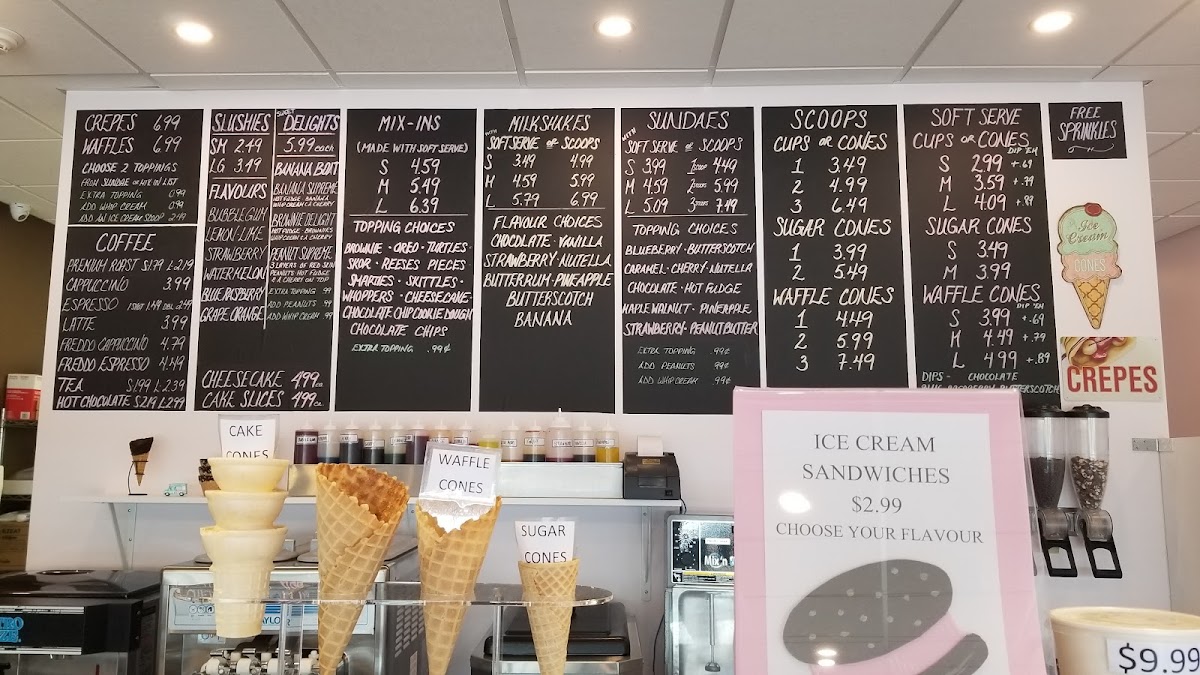 CREPES 6.99
WAFFLES 6.99
CHOOSE 2 TOPPINGS
FROM SUNDAE OR MIX IN LIST
EXTRA TOPPING 0.99
ADD WHIP CREAM 0.99
ADD AN ICE CREAM SCOOP 2.49
COFFEE
PREMIUM ROAST S1.79 L2.19
CAPPUCCINO 3.99
ESPRESSO 1 SHOT 1.49 DBL 2.49
LATTE 3.99
FREDDO CAPPUCCINO 4.79
FREDDO ESPRESSO 4.49
TEA S1.99 L2.39
HOT CHOCOLATE S2.19 L2.99
SLUSHIES
SM 2.49
LG 3.49
FLAVOURS
BUBBLEGUM
LEMON-LIME
STRAWBERRY
WATERMELON
BLUE RASPBERRY
GRAPE ORANGE
DELIGHTS
5.99 each
BANANA BOAT
BANANA SUPREME
HOT FUDGE BANANA
WHIP CREAM & CHERRY
BROWNIE DELIGHT
HOT FUDGE - BROWNIES
WHIP CREAM & CHERRY
PEANUT SUPREME
PEANUTS HOT FUDGE
& A CHERRY ON TOP
EXTRA TOPPING .99
ADD PEANUTS .99
ADD WHIP CREAM .99
CHEESECAKE 4.99 ea
CAKE SLICES 4.99 ea
MIX-INS
(MADE WITH SOFT SERVE)
S 4.59
M 5.49
L 6.39
TOPPING CHOICES
BROWNIE · OREO · TURTLES ·
SKOR · REESES PIECES
SMARTIES · SKITTLES ·
WHOPPERS · CHEESECAKE ·
CHOCOLATE CHIP COOKIE DOUGH
CHOCOLATE CHIPS
EXTRA TOPPING .99¢
MILKSHAKES
WITH
SOFT SERVE or SCOOPS
S 3.49 4.99
M 4.59 5.99
L 5.79 6.99
FLAVOUR CHOICES
CHOCOLATE · VANILLA
STRAWBERRY · NUTELLA
BUTTER RUM · PINEAPPLE
BUTTERSCOTCH
BANANA
SUNDAES
WITH
SOFT SERVE or SCOOPS
S 3.99 1 scoop 4.49
M 4.59 2 scoops 5.99
L 5.09 3 scoops 7.49
TOPPING CHOICES
BLUEBERRY · BUTTERSCOTCH
CARAMEL · CHERRY · NUTELLA
CHOCOLATE · HOT FUDGE
MAPLE WALNUT · PINEAPPLE
STRAWBERRY · PEANUT BUTTER
EXTRA TOPPING .99¢
ADD PEANUTS .99¢
ADD WHIP CREAM .99¢
SCOOPS
CUPS OR CONES
1 3.49
2 4.99
3 6.49
SUGAR CONES
1 3.99
2 5.49
WAFFLE CONES
1 4.49
2 5.99
3 7.49
SOFT SERVE
CUPS OR CONES
DIP 'EM
S 2.99 +.69
M 3.59 +.79
L 4.09 +.89
SUGAR CONES
S 3.49
M 3.99
WAFFLE CONES
DIP 'EM
S 3.99 +.69
M 4.49 +.79
L 4.99 +.89
DIPS - CHOCOLATE
BLUE RASPBERRY BUTTERSCOTCH
FREE
SPRINKLES
Ice
Cream
CONES
CREPES
CAKE
CONES
WAFFLE
CONES
SUGAR
CONES
ICE CREAM
SANDWICHES
$2.99
CHOOSE YOUR FLAVOUR
$9.99